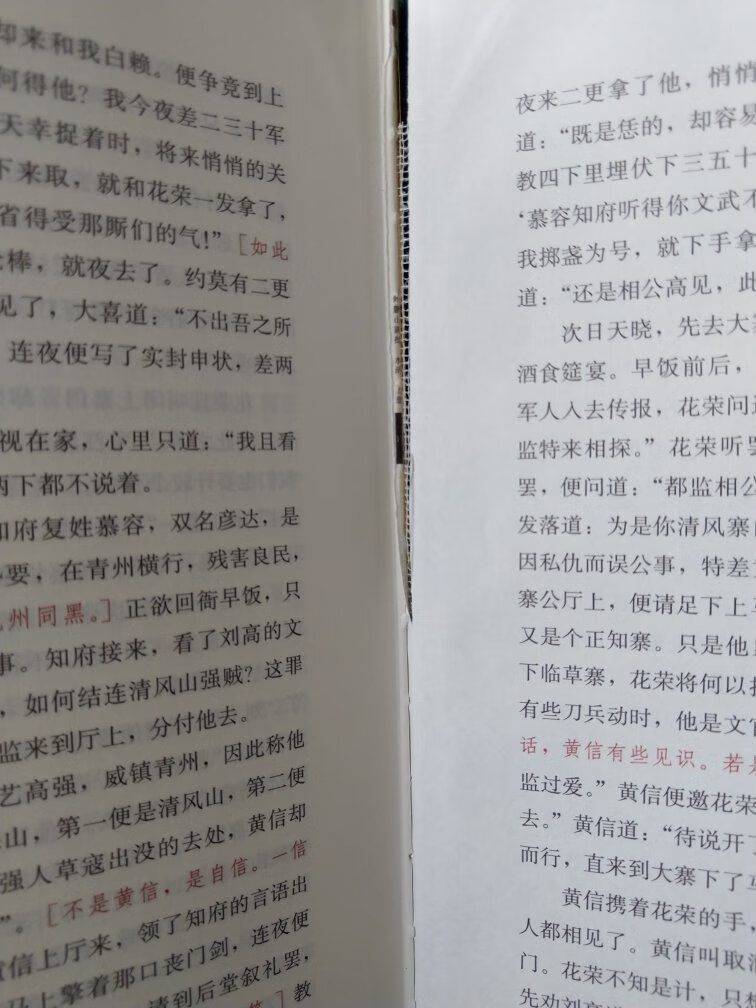 却来和我白赖。便争竞到上
何得他？我今夜差二三十军
天幸捉着时，将来悄悄的关
下来取，就和花荣一发拿了，
省得受那厮们的气！”［如此
棒，就夜去了。约莫有二更
见了，大喜道：“不出吾之所
连夜便写了实封申状，差两
视在家，心里只道：“我且看
两下都不说着。
知府复姓慕容，双名彦达，是
要，在青州横行，残害良民，
州同黑。］正欲回衙早饭，只
事。知府接来，看了刘高的文
，如何结连清风山强贼？这罪
监来到厅上，分付他去。
艺高强，威镇青州，因此称他
山，第一便是清风山，第二便
强人草寇出没的去处，黄信却
”。［不是黄信，是自信。一信
黄信上厅来，领了知府的言语出
马上擎着那口丧门剑，连夜便
请到后堂叙礼罢，
］教
夜来二更拿了他，悄悄
道：“既是恁的，却容易
教四下里埋伏下三五十
‘慕容知府听得你文武不
我掷盏为号，就下手拿
道：“还是相公高见，此
次日天晓，先去大寨
酒食筵宴。早饭前后，
军人入去传报，花荣问道
监特来相探。”花荣听罢
罢，便问道：“都监相公
发落道：为是你清风寨
因私仇而误公事，特差
寨公厅上，便请足下上马
又是个正知寨。只是他
下临草寨，花荣将何以
有些刀兵动时，他是文官
话，黄信有些见识。若是
监过爱。”黄信便邀花荣
去。”黄信道：“待说开了
而行，直来到大寨下了马
黄信携着花荣的手，
人都相见了。黄信叫取酒
门。花荣不知是计，只
先劝刘高